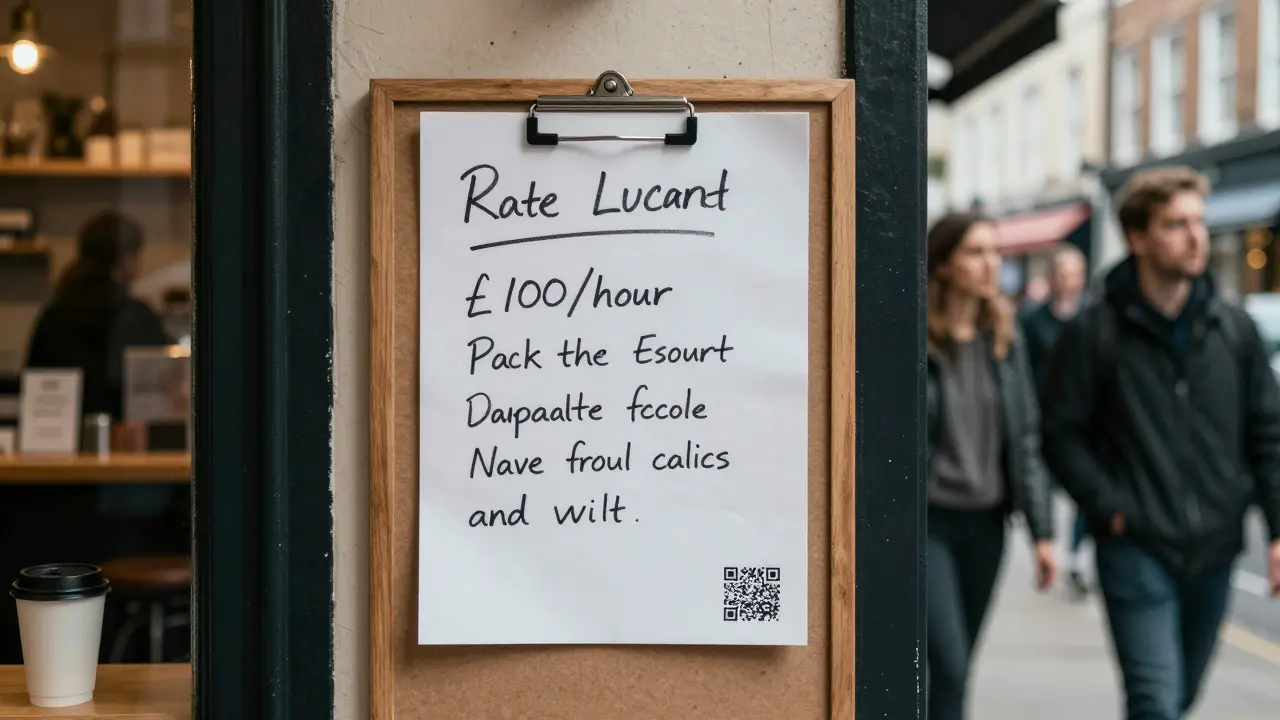 Rate Lucant
£100/hour
Pack the Esourt
Daupaalte fccole
Nave froul calics
and wilt.